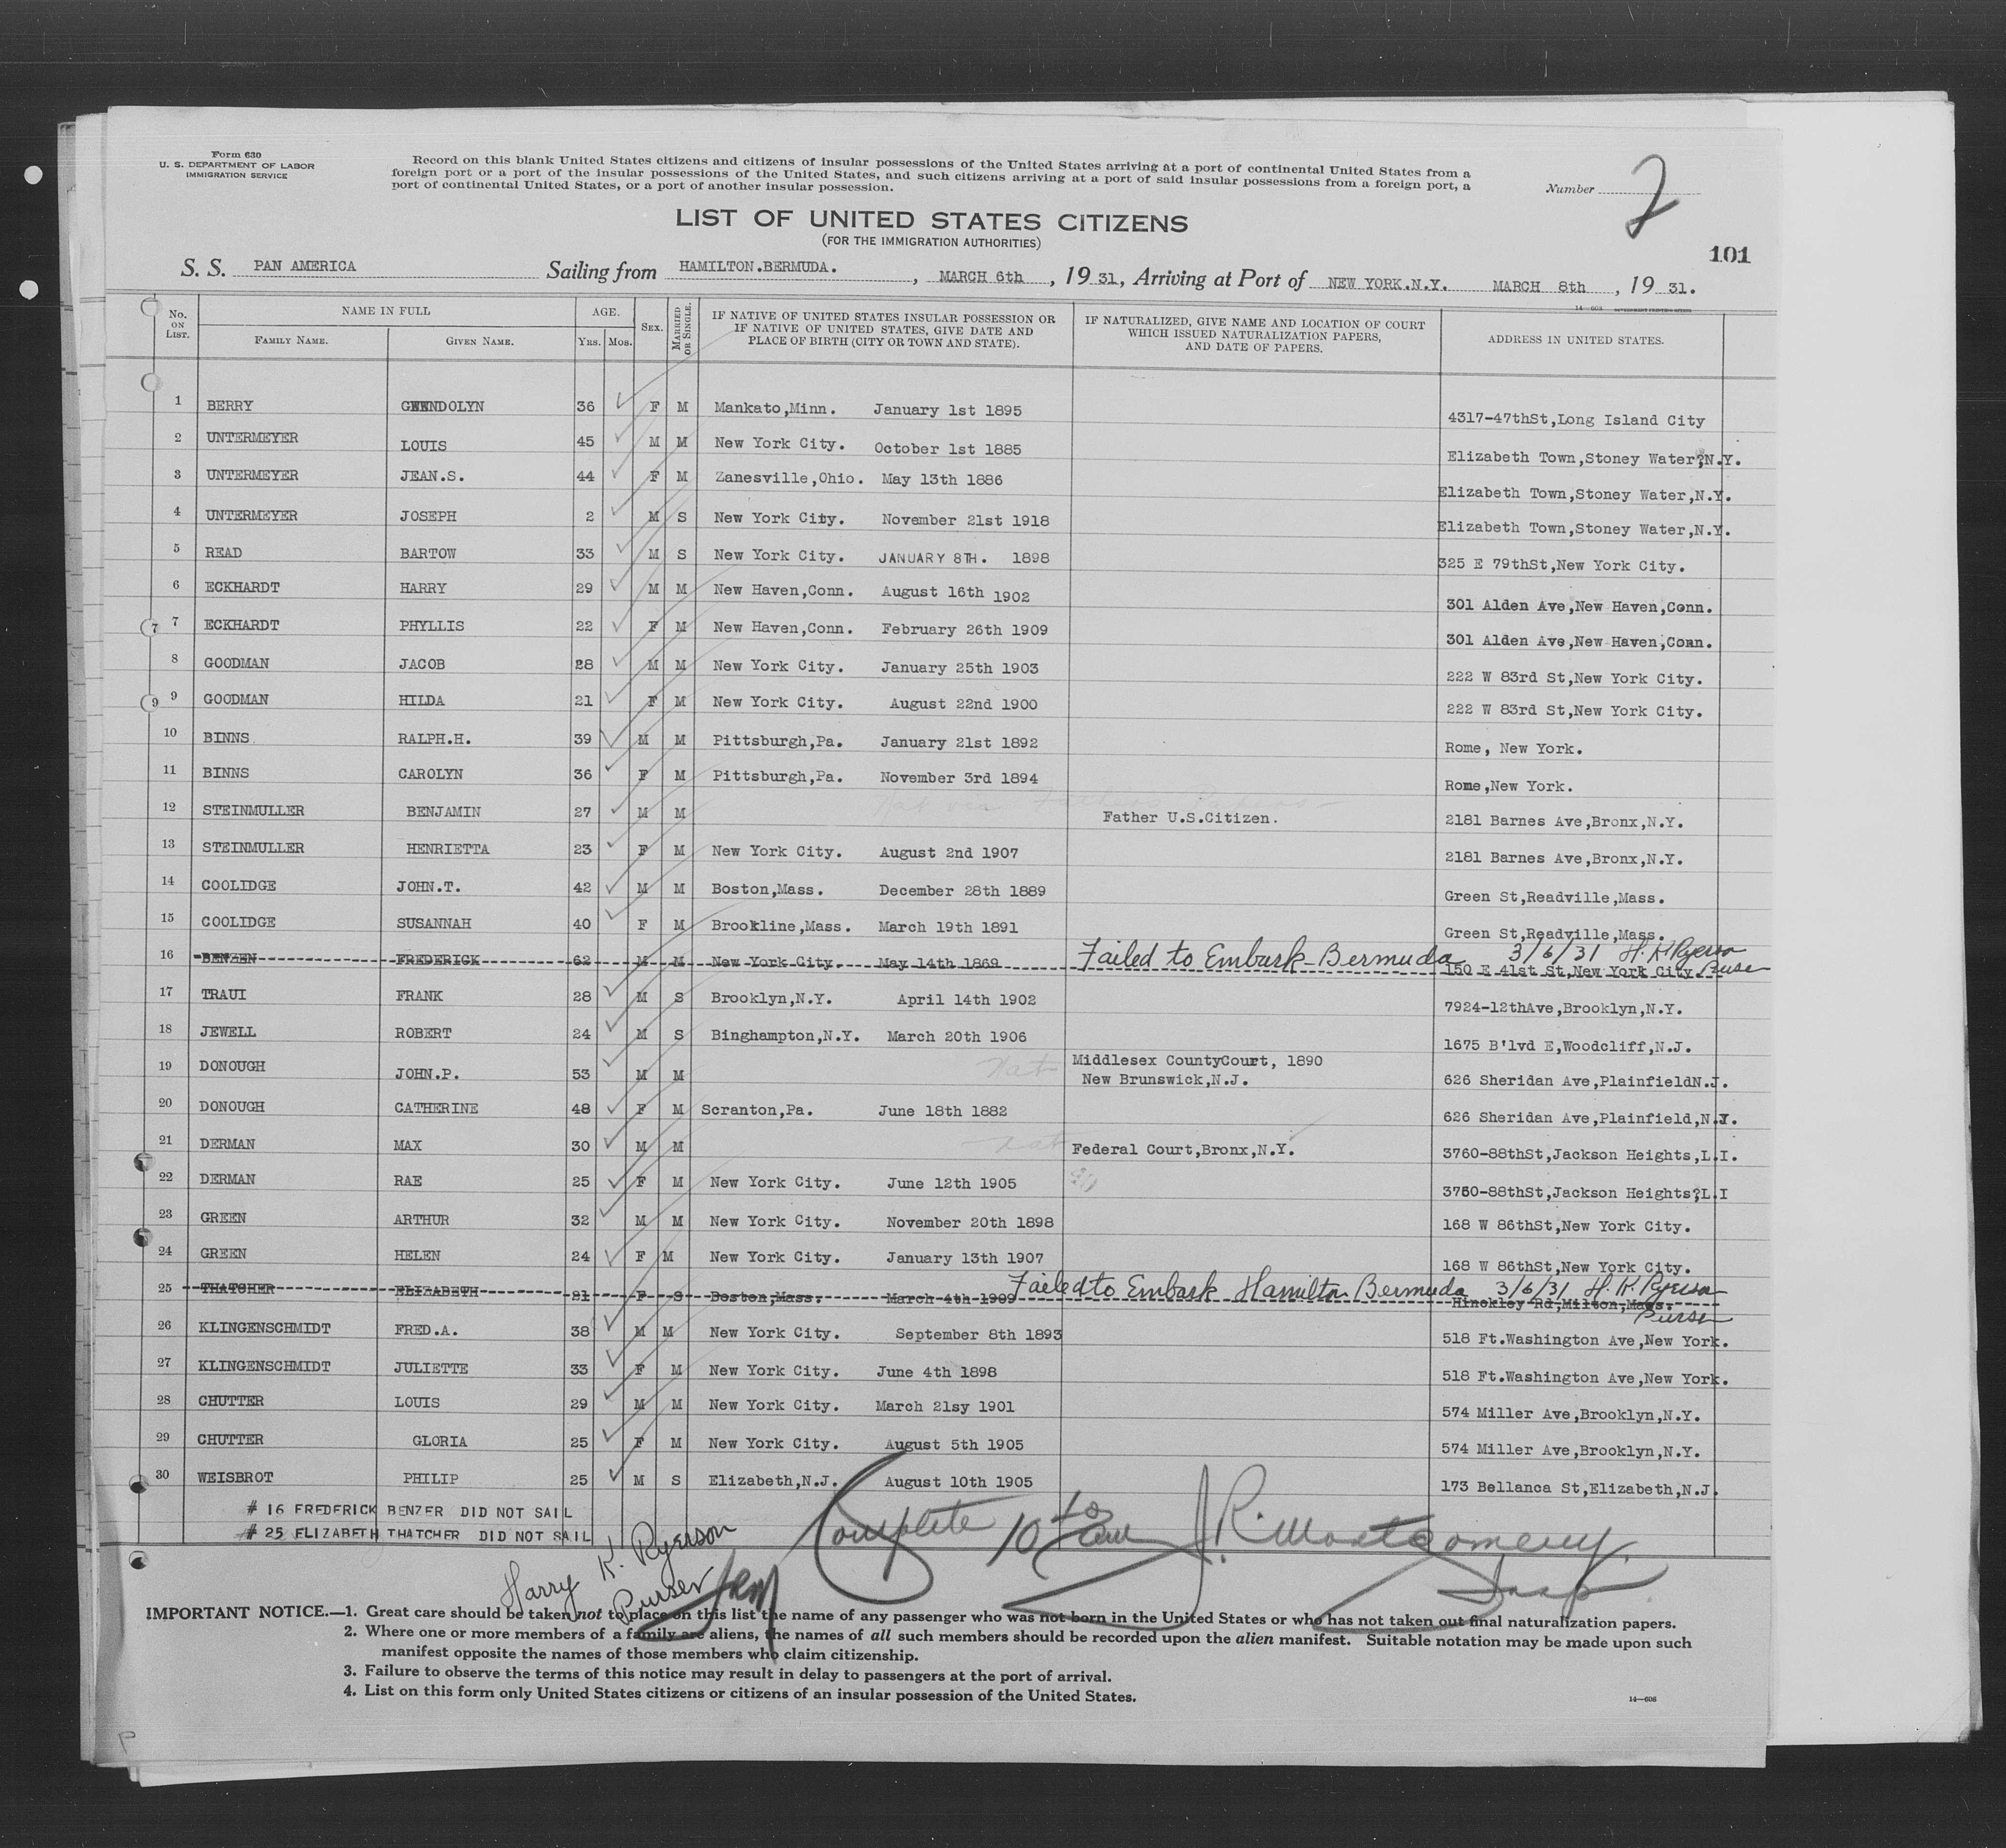 Form 630
U. S. DEPARTMENT OF LABOR
IMMIGRATION SERVICE
Record on this blank United States citizens and citizens of insular possessions of the United States arriving at a port of continental United States from a
foreign port or a port of the insular possessions of the United States, and such citizens arriving at a port of said insular possessions from a foreign port, a
port of continental United States, or a port of another insular possession.
Number 2
LIST OF UNITED STATES CITIZENS
(FOR THE IMMIGRATION AUTHORITIES)
101
S. S. PAN AMERICA Sailing from HAMILTON.BERMUDA. , MARCH 6th , 19 31, Arriving at Port of NEW YORK.N.Y. MARCH 8th , 19 31.
No. ON LIST. NAME IN FULL FAMILY NAME. GIVEN NAME. AGE. YRS. MOS. SEX. MARRIED OR SINGLE. IF NATIVE OF UNITED STATES INSULAR POSSESSION OR IF NATIVE OF UNITED STATES, GIVE DATE AND PLACE OF BIRTH (CITY OR TOWN AND STATE). IF NATURALIZED, GIVE NAME AND LOCATION OF COURT WHICH ISSUED NATURALIZATION PAPERS, AND DATE OF PAPERS. ADDRESS IN UNITED STATES.
1 BERRY GWENDOLYN 36 F M Mankato,Minn. January 1st 1895 4317-47thSt,Long Island City
2 UNTERMEYER LOUIS 45 M M New York City. October 1st 1885 Elizabeth Town,Stoney Water?N.Y.
3 UNTERMEYER JEAN.S. 44 F M Zanesville,Ohio. May 13th 1886 Elizabeth Town,Stoney Water,N.Y.
4 UNTERMEYER JOSEPH 2 M S New York City. November 21st 1918 Elizabeth Town,Stoney Water,N.Y.
5 READ BARTOW 33 M S New York City. JANUARY 8TH. 1898 325 E 79thSt,New York City.
6 ECKHARDT HARRY 29 M M New Haven,Conn. August 16th 1902 301 Alden Ave,New Haven,Conn.
7 7 ECKHARDT PHYLLIS 22 F M New Haven,Conn. February 26th 1909 301 Alden Ave,New Haven,Conn.
8 GOODMAN JACOB 28 M M New York City. January 25th 1903 222 W 83rd St,New York City.
9 9 GOODMAN HILDA 21 F M New York City. August 22nd 1900 222 W 83rd St,New York City.
10 BINNS RALPH.H. 39 M M Pittsburgh,Pa. January 21st 1892 Rome, New York.
11 BINNS CAROLYN 36 F M Pittsburgh,Pa. November 3rd 1894 Rome,New York.
12 STEINMULLER BENJAMIN 27 M M Father U.S.Citizen. 2181 Barnes Ave,Bronx,N.Y.
13 STEINMULLER HENRIETTA 23 F M New York City. August 2nd 1907 2181 Barnes Ave,Bronx,N.Y.
14 COOLIDGE JOHN.T. 42 M M Boston,Mass. December 28th 1889 Green St,Readville,Mass.
15 COOLIDGE SUSANNAH 40 F M Brookline,Mass. March 19th 1891 Green St,Readville,Mass.
16 BENZEN FREDERICK 62 M M New York City. May 14th 1869 Failed to Embark-Bermuda 3/6/31 H.K Ryerson Purser 150 E 41st St,New York City.
17 TRAUI FRANK 28 M S Brooklyn,N.Y. April 14th 1902 7924-12thAve,Brooklyn,N.Y.
18 JEWELL ROBERT 24 M S Binghampton,N.Y. March 20th 1906 1675 B'lvd E,Woodcliff,N.J.
19 DONOUGH JOHN.P. 53 M M Nat Middlesex CountyCourt, 1890 New Brunswick,N.J. 626 Sheridan Ave,PlainfieldN.J.
20 DONOUGH CATHERINE 48 F M Scranton,Pa. June 18th 1882 626 Sheridan Ave,Plainfield,N.J.
21 DERMAN MAX 30 M M Nat Federal Court,Bronx,N.Y. 3760-88thSt,Jackson Heights,L.I.
22 DERMAN RAE 25 F M New York City. June 12th 1905 3760-88thSt,Jackson Heights?L.I
23 GREEN ARTHUR 32 M M New York City. November 20th 1898 168 W 86thSt,New York City.
24 GREEN HELEN 24 F M New York City. January 13th 1907 168 W 86thSt,New York City.
25 THATCHER ELIZABETH 21 F S Boston,Mass. March 4th 1909 Failed to Embark Hamilton Bermuda 3/6/31 H. K. Ryerson Purser Hinckley Rd,Milton,Mass.
26 KLINGENSCHMIDT FRED.A. 38 M M New York City. September 8th 1893 518 Ft.Washington Ave,New York.
27 KLINGENSCHMIDT JULIETTE 33 F M New York City. June 4th 1898 518 Ft.Washington Ave,New York.
28 CHUTTER LOUIS 29 M M New York City. March 21sy 1901 574 Miller Ave,Brooklyn,N.Y.
29 CHUTTER GLORIA 25 F M New York City. August 5th 1905 574 Miller Ave,Brooklyn,N.Y.
30 WEISBROT PHILIP 25 M S Elizabeth,N.J. August 10th 1905 173 Bellanca St,Elizabeth,N.J.
# 16 FREDERICK BENZER DID NOT SAIL
# 25 ELIZABETH THATCHER DID NOT SAIL
Harry K. Ryerson
Purser
JRM
Complete 10 J.R. Montgomery.
Insp
IMPORTANT NOTICE.—1. Great care should be taken not to place on this list the name of any passenger who was not born in the United States or who has not taken out final naturalization papers.
2. Where one or more members of a family are aliens, the names of all such members should be recorded upon the alien manifest. Suitable notation may be made upon such
manifest opposite the names of those members who claim citizenship.
3. Failure to observe the terms of this notice may result in delay to passengers at the port of arrival.
4. List on this form only United States citizens or citizens of an insular possession of the United States.
14—608
P